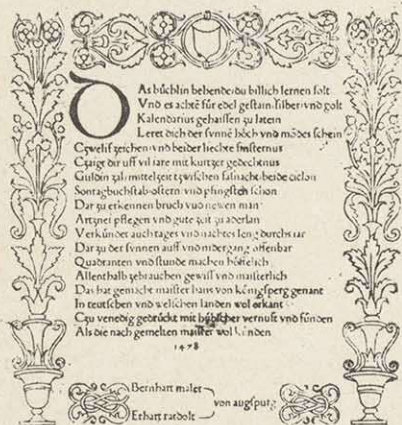 DAs büchlin behende du billich lernen solt
Vnd es achtē für edel gestain·silber vnd golt
Kalendarius gehaissen zu latein
Leret dich der sunnē höch vnd mōdes schein
Czwelif zeichen vnd beider liechte finsternus
Czaigt dir uff vil iare mit kurtzer gedechtnus
Guldin zal·mittelzeit tzwischen fasnacht·beide ciclon
Sontagbuchstab·ostern vnd pfingstē schon
Dar zu erkennen bruch vnd newen man
Artznei pflegen vnd gute zeit zu aderlan
Verkündet auch tages vnd nachtes leng durchs iar
Dar zu der sunnen auff vnd nidergang offenbar
Quadranten vnd stunde machen höffelich
Allenthalb gebrauchen gewiss vnd maisterlich
Das hat gemacht maister hans von küngsperg genant
In teutschen vnd welschen landen wol erkant
Czu venedig gedruckt mit hübscher vernuft vnd sünden
Als die nach gemelten maister wol künden
1478
Bernhart maler
Erhart ratdolt
von augspurg